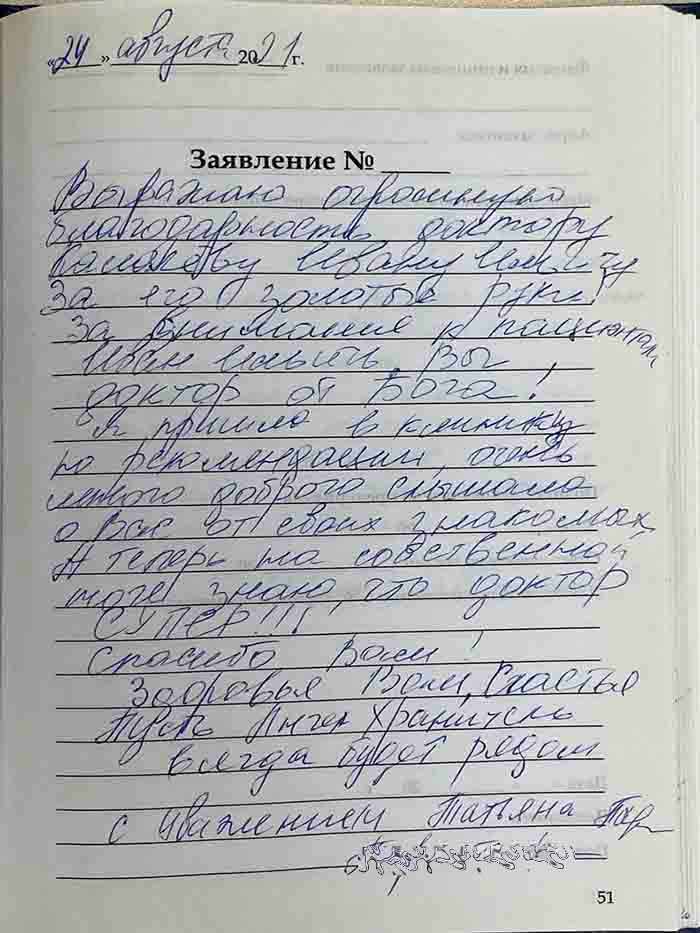 «24» август 2021 г.
Заявление №
Выражаю огромную
благодарность доктору
Ивану
За его золотые руки!
За внимание к пациентам
Иван Ильич, Вы
доктор от Бога!
Я пришла в клинику
по рекомендации, очень
много доброго слышала
о Вас от своих знакомых,
А теперь на собственной
ноге знаю, что доктор
СУПЕР!!!
Спасибо Вам!
Здоровья Вам, Счастья
Пусть Ангел Хранитель
всегда будет рядом
с уважением Татьяна
51